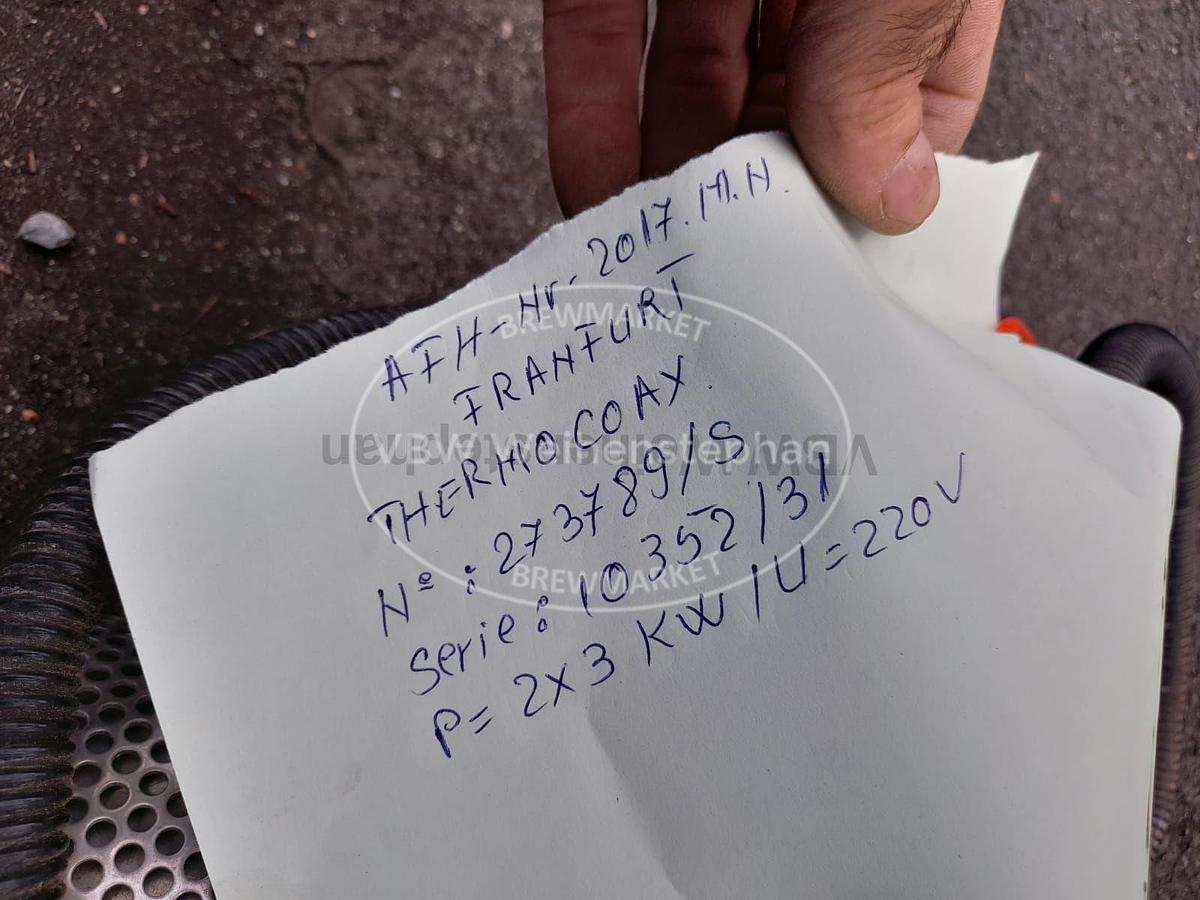 AFH-Nr-2017.
FRANFURT
THERMOCOAX.
Nº: 273789/S
Serie: 10352/31
P= 2x3 KW/U=220V
BREWMARKET
VBW Weihenstephan
BREWMARKET